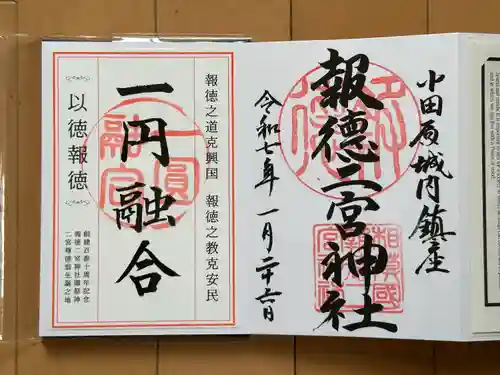 小田原城内鎮座
報徳二宮神社
令和七年 一月二十六日
報徳之道克興国 報徳之教克安民
一円融合
以徳報徳
創建百参十周年記念
報徳二宮神社御祭神
二宮尊徳翁生誕之地